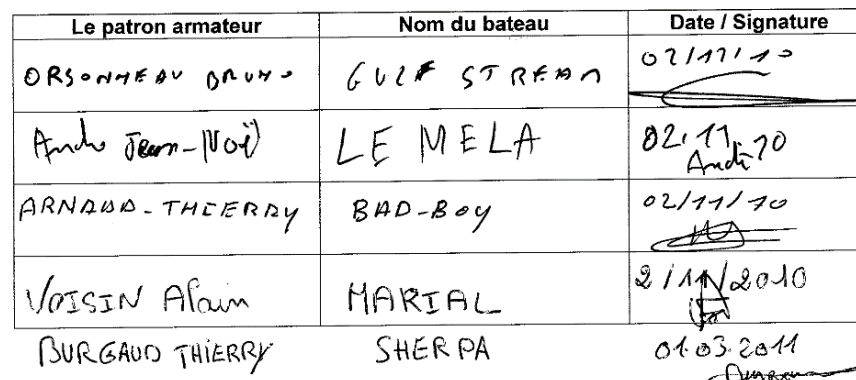 Le patron armateur Nom du bateau Date / Signature
ORSONNEAU BRUNO GULF STREAM 02/11/10
André Jean-Noël LE MELA 02.11.10
André
ARNAUD-THIERRY BAD-BOY 02/11/10
VOISIN Alain MARIAL 2/11/2010
BURGAUD THIERRY SHERPA 01.03.2011